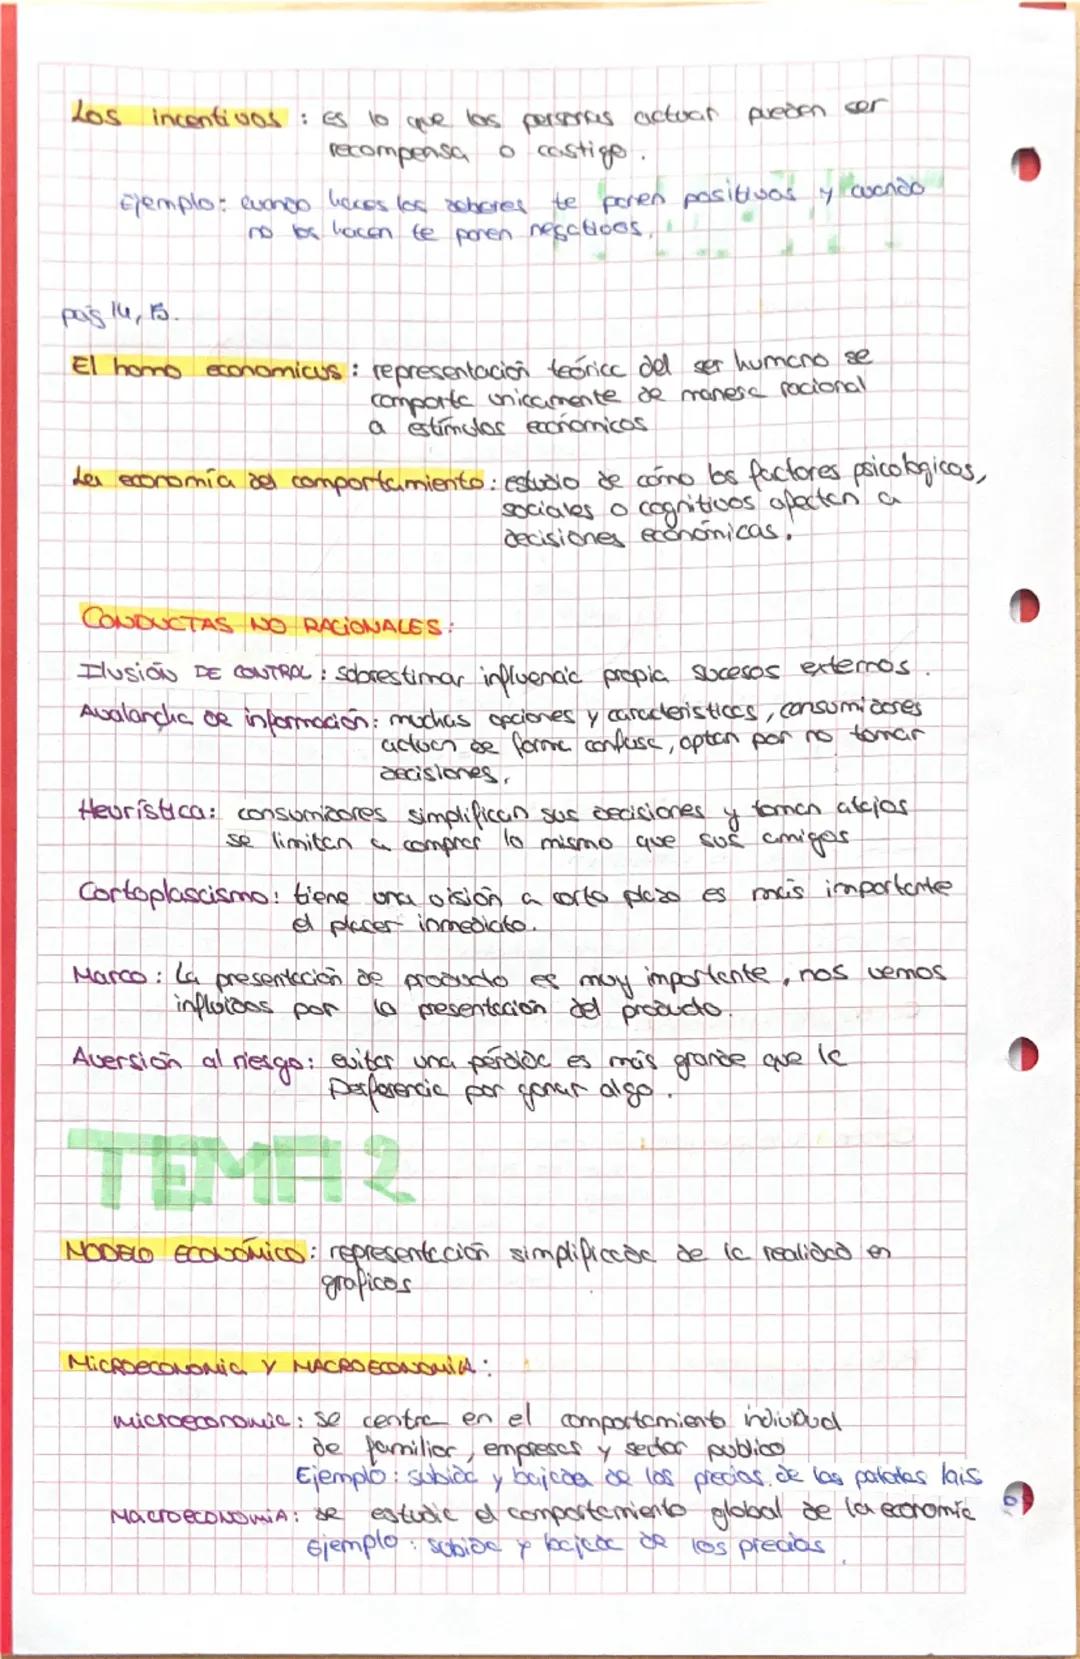 Los incentivos : es lo que las personas actuar pueden ser
recompensa o castigo.
Ejemplo: cuando haces los deberes te ponen positivos y cuando
no los hacen te ponen negativos.
pag 14, 15.
El homo economicus : representación teórica del ser humano se
comporta unicamente de manera racional
a estímulos económicos
La economía del comportamiento : estudio de cómo los factores psicologicos,
sociales o cognitivos afectan a
decisiones económicas.
CONDUCTAS NO RACIONALES:
Ilusión DE CONTROL : sobrestimar influencia propia sucesos externos.
Avalancha de información: muchas opciones y caracteristicas, consumidores
actuan de forma confusa, optan por no tomar
decisiones.
Heurística: consumidores simplifican sus decisiones y toman atajos
se limitan a comprar lo mismo que sus amigos
Cortoplascismo: tiene una visión a corto plazo es más importante
el placer inmediato.
Marco: La presentación de producto es muy importante, nos vemos
influidos por la presentación del producto.
Aversión al riesgo: evitar una pérdida es más grande que la
Perferencia por ganar algo.
TEMA 2
MODELO ECONÓMICO: representación simplificada de la realidad en
graficos
MICROECONOMIA Y MACROECONOMIA:
microeconomia: se centra en el comportamiento individual
de familiar, empresas y sector publico
Ejemplo: subida y bajada de los precios de las patatas lais
MACROECONOMIA: se estudia el comportamiento global de la economía
Ejemplo: subida y bajada de los precios.